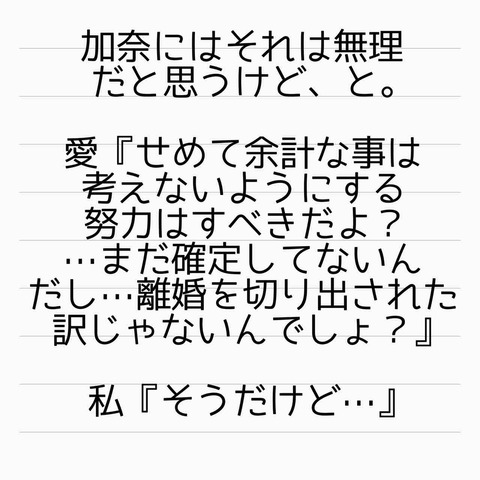 加奈にはそれは無理
だと思うけど、と。
愛『せめて余計な事は
考えないようにする
努力はすべきだよ？
…まだ確定してないん
だし…離婚を切り出された
訳じゃないんでしょ？』
私『そうだけど…』